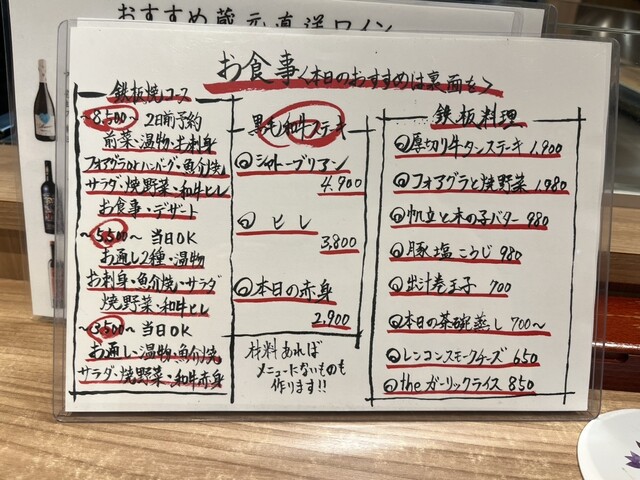 おすすめ蔵元直送ワイン
お食事<本日のおすすめは裏面を>
鉄板焼コース
~8,500~ 2日前予約
前菜・温物・お刺身
フォアグラのハンバーグ・魚介焼
サラダ・焼野菜・和牛ヒレ
お食事・デザート
~5,500~ 当日OK
お通し2種・温物
お刺身・魚介焼・サラダ
焼野菜・和牛ヒレ
~3,500~ 当日OK
お通し・温物・魚介焼
サラダ・焼野菜・和牛赤身
黒毛和牛ステーキ
シャトーブリアン
4,900
ヒレ
3,800
本日の赤身
2,900
材料あれば
メニューにないものも
作ります!!
鉄板料理
厚切り牛タンステーキ 1,900
フォアグラと焼野菜 1,980
帆立と木の子バター 980
豚塩こうじ 980
出汁巻玉子 700
本日の茶碗蒸し 700~
レンコンスモークチーズ 650
theガーリックライス 850